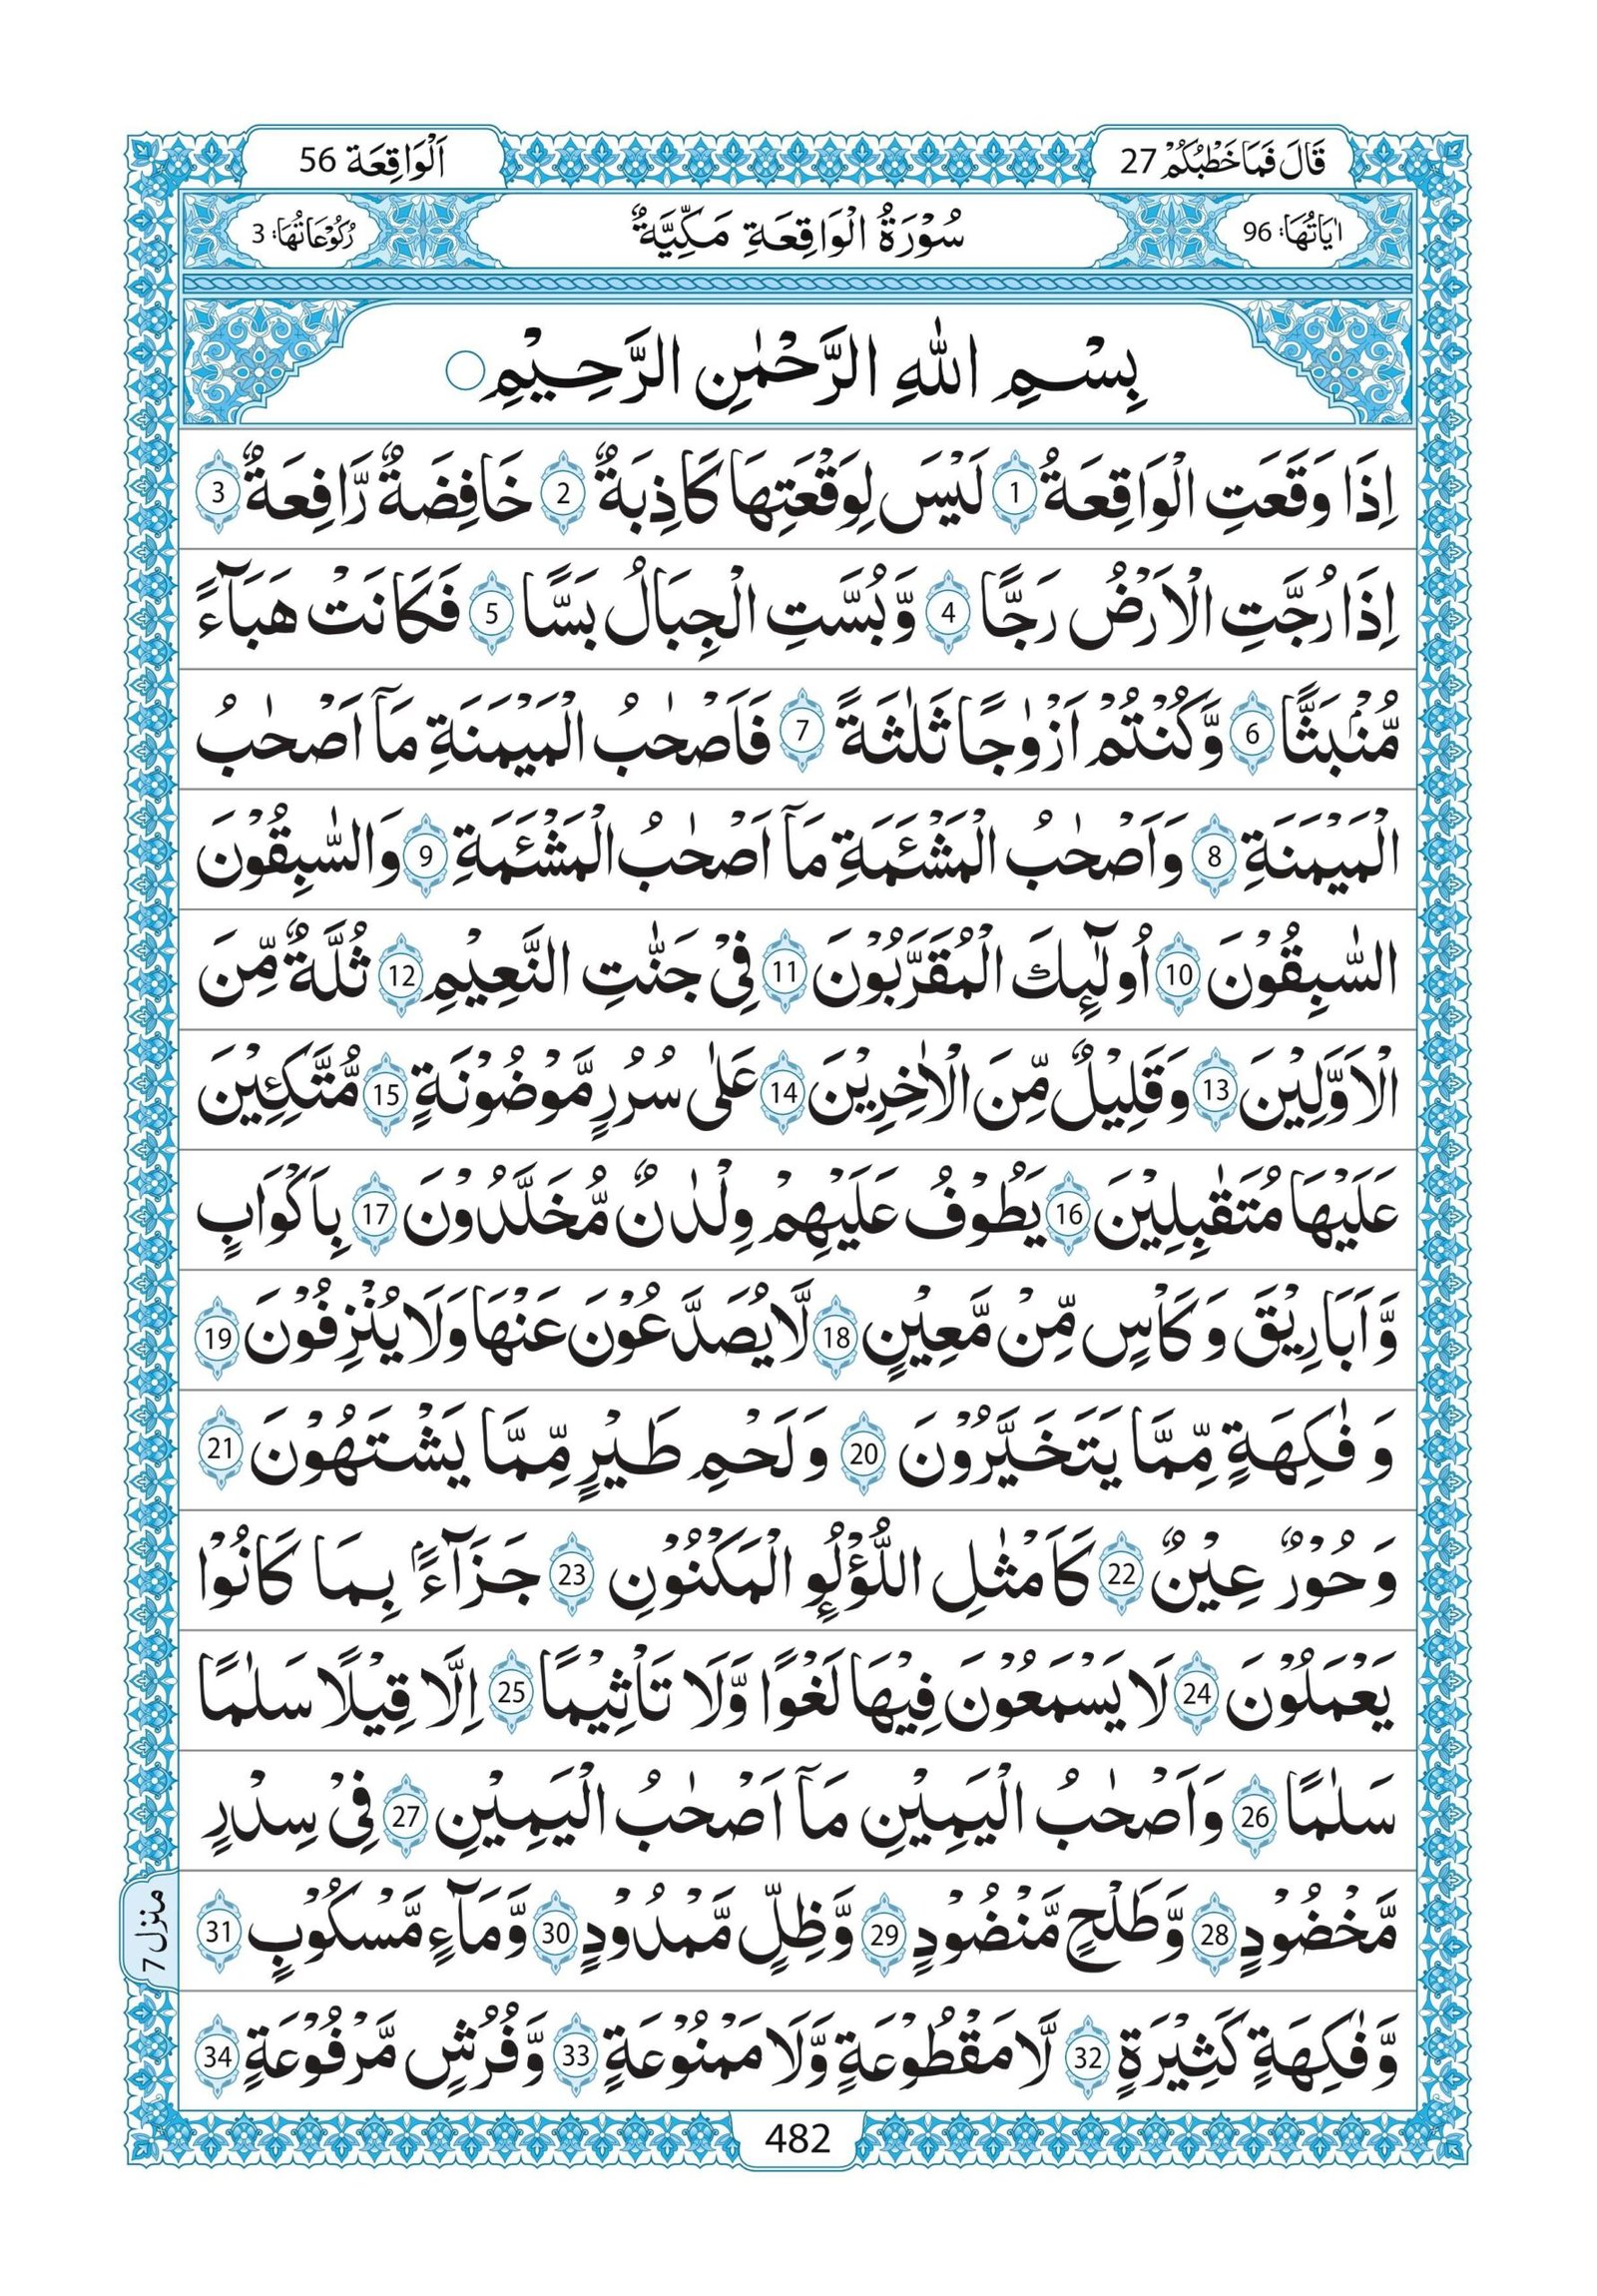 قَالَ فَمَا خَطْبُكُمْ 27
اَلْوَاقِعَة 56
اٰيَاتُهَا: 96
سُوْرَةُ الْوَاقِعَةِ مَكِّيَّةٌ
رُكُوْعَاتُهَا: 3
بِسْمِ اللّٰهِ الرَّحْمٰنِ الرَّحِيْمِ ○
اِذَا وَقَعَتِ الْوَاقِعَةُ 1 لَيْسَ لِوَقْعَتِهَا كَاذِبَةٌ 2 خَافِضَةٌ رَّافِعَةٌ 3
اِذَا رُجَّتِ الْاَرْضُ رَجًّا 4 وَّبُسَّتِ الْجِبَالُ بَسًّا 5 فَكَانَتْ هَبَآءً
مُّنْۢبَثًّا 6 وَّكُنْتُمْ اَزْوٰجًا ثَلٰثَةً 7 فَاَصْحٰبُ الْمَيْمَنَةِ مَآ اَصْحٰبُ
الْمَيْمَنَةِ 8 وَاَصْحٰبُ الْمَشْئَمَةِ مَآ اَصْحٰبُ الْمَشْئَمَةِ 9 وَالسّٰبِقُوْنَ
السّٰبِقُوْنَ 10 اُولٰٓئِكَ الْمُقَرَّبُوْنَ 11 فِيْ جَنّٰتِ النَّعِيْمِ 12 ثُلَّةٌ مِّنَ
الْاَوَّلِيْنَ 13 وَقَلِيْلٌ مِّنَ الْاٰخِرِيْنَ 14 عَلٰى سُرُرٍ مَّوْضُوْنَةٍ 15 مُّتَّكِئِيْنَ
عَلَيْهَا مُتَقٰبِلِيْنَ 16 يَطُوْفُ عَلَيْهِمْ وِلْدٰنٌ مُّخَلَّدُوْنَ 17 بِاَكْوَابٍ
وَّاَبَارِيْقَ وَكَاْسٍ مِّنْ مَّعِيْنٍ 18 لَّا يُصَدَّعُوْنَ عَنْهَا وَلَا يُنْزِفُوْنَ 19
وَفٰكِهَةٍ مِّمَّا يَتَخَيَّرُوْنَ 20 وَلَحْمِ طَيْرٍ مِّمَّا يَشْتَهُوْنَ 21
وَحُوْرٌ عِيْنٌ 22 كَاَمْثٰلِ اللُّؤْلُؤِ الْمَكْنُوْنِ 23 جَزَآءًۢ بِمَا كَانُوْا
يَعْمَلُوْنَ 24 لَا يَسْمَعُوْنَ فِيْهَا لَغْوًا وَّلَا تَاْثِيْمًا 25 اِلَّا قِيْلًا سَلٰمًا
سَلٰمًا 26 وَاَصْحٰبُ الْيَمِيْنِ مَآ اَصْحٰبُ الْيَمِيْنِ 27 فِيْ سِدْرٍ
مَّخْضُوْدٍ 28 وَّطَلْحٍ مَّنْضُوْدٍ 29 وَّظِلٍّ مَّمْدُوْدٍ 30 وَّمَآءٍ مَّسْكُوْبٍ 31
وَّفٰكِهَةٍ كَثِيْرَةٍ 32 لَّا مَقْطُوْعَةٍ وَّلَا مَمْنُوْعَةٍ 33 وَّفُرُشٍ مَّرْفُوْعَةٍ 34
منزل 7
482